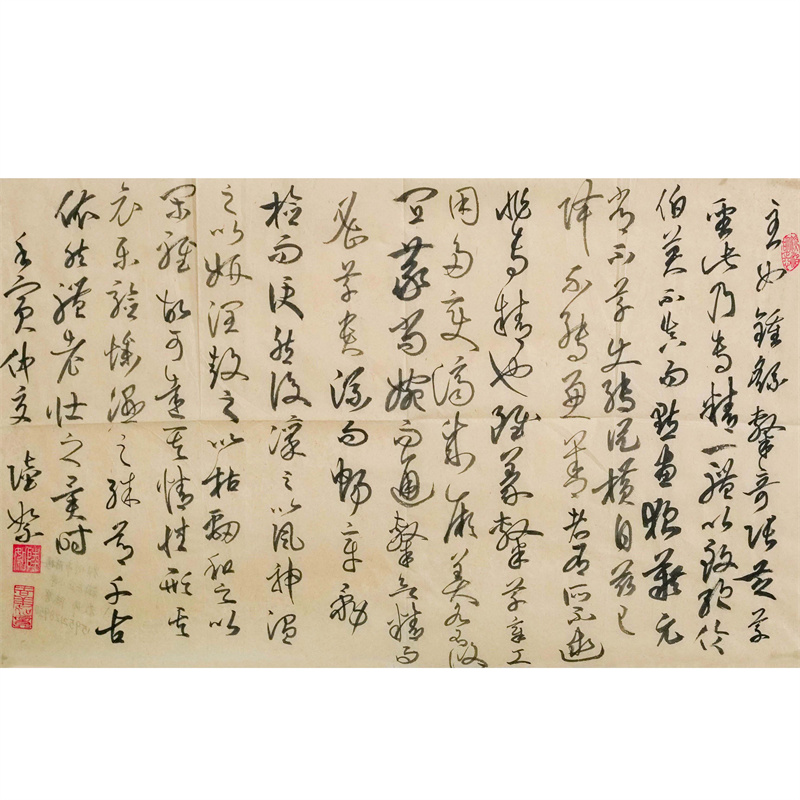 至如鍾繇隸奇張芝草
聖此乃專精一體以致絕倫
伯英不真而點畫狼藉元
常不草使轉縱橫自茲已
降不能兼善者有所不逮
非專精也雖篆隸草章工
用多變濟成厥美各有攸
宜篆尚婉而通隸欲精而
密草貴流而暢章務
檢而便然後凜之以風神溫
之以妍潤鼓之以枯勁和之以
閑雅故可達其情性形其
哀樂驗燥濕之殊節千古
依然體老壯之異時
壬寅仲夏 陸